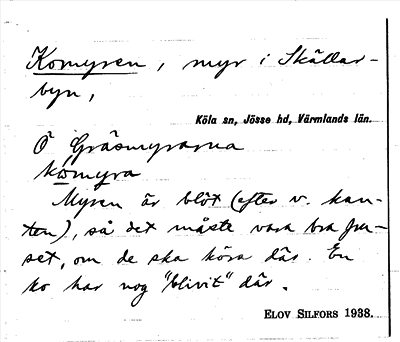 Komyren, myr i Skällar-
byn,
Köla sn, Jösse hd, Värmlands län.
Ö Gräsmyrarna
komyra
Myren är blöt (efter v. kan-
ten), så det måste vara bra fru-
set, om de ska köra där. En
ko har nog "blivit" där.
ELOV SILFORS 1938.